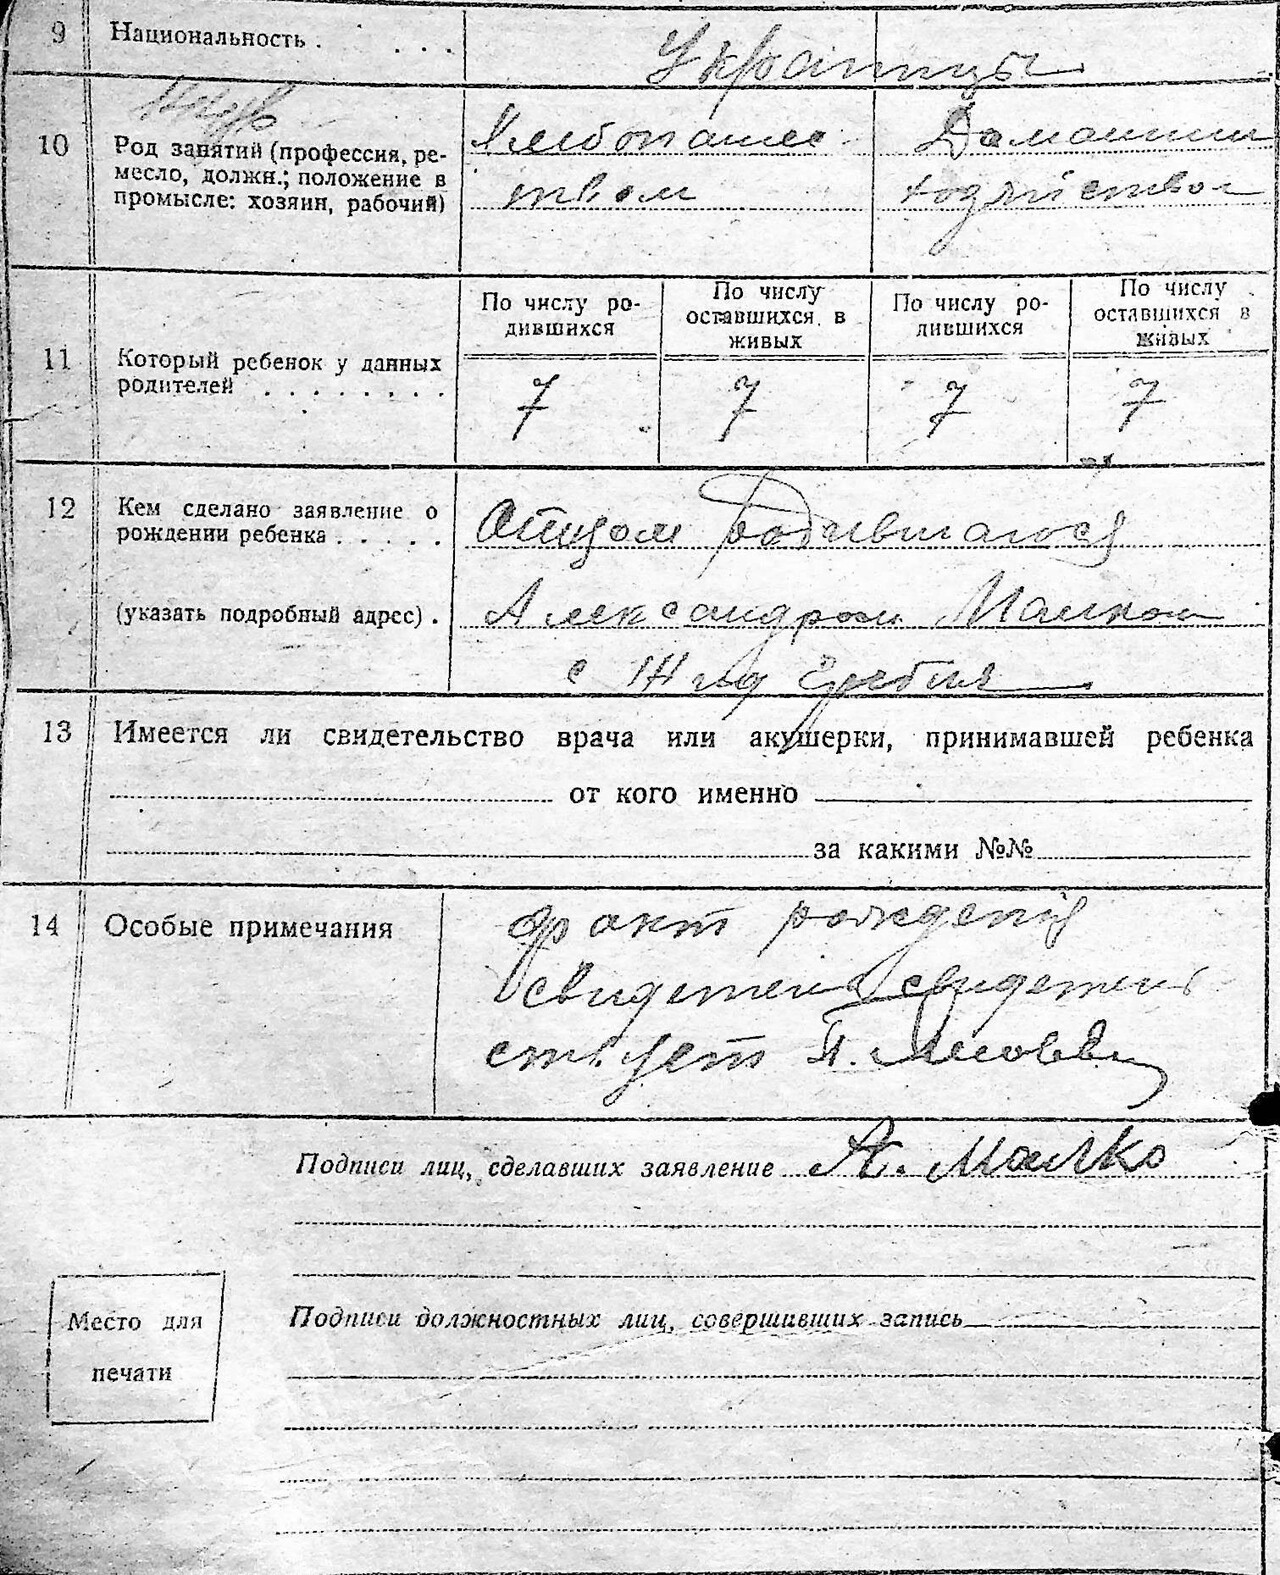 9 Национальность . . . . Украинцы
10 Род занятий (профессия, ре-
месло, должн.; положение в
промысле: хозяин, рабочий)
Хлебопашес
твом
Домашним
хозяйством
11 Который ребенок у данных
родителей . . . . . . . .
По числу ро-
дившихся
По числу
оставшихся в
живых
По числу ро-
дившихся
По числу
оставшихся в
живых
7 7 7 7
12 Кем сделано заявление о
рождении ребенка . . . . .
(указать подробный адрес) .
Отцом родившагося
Александром Малком
с
13 Имеется ли свидетельство врача или акушерки, принимавшей ребенка
от кого именно
за какими №№
14 Особые примечания
факт рождения
свидетель свидетель
ствует П.
Подписи лиц, сделавших заявление А. Малко
Место для
печати
Подписи должностных лиц, совершивших запись